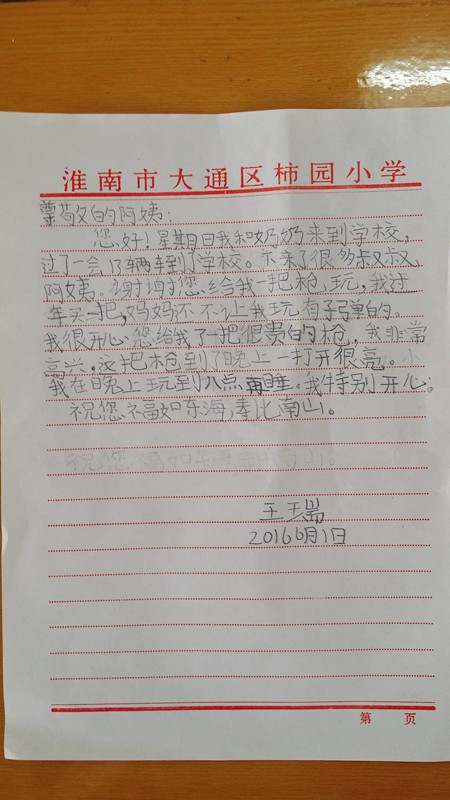 淮南市大通区柿园小学
尊敬的阿姨：
您好！星期日我和奶奶来到学校，
过了一会13辆车到了学校。下来了很多叔叔、
阿姨。谢谢您给我一把枪玩，我过
年买一把，妈妈不不让我玩有子弹的。
我很开心您给我了一把很贵的枪，我非常
高兴，这把枪到了晚上一打开很亮。
我在晚上玩到八点再睡。我特别开心。
祝您福如东海，寿比南山。
祝您福如东海寿比南山。
王瑞
2016 6月1日
第 页